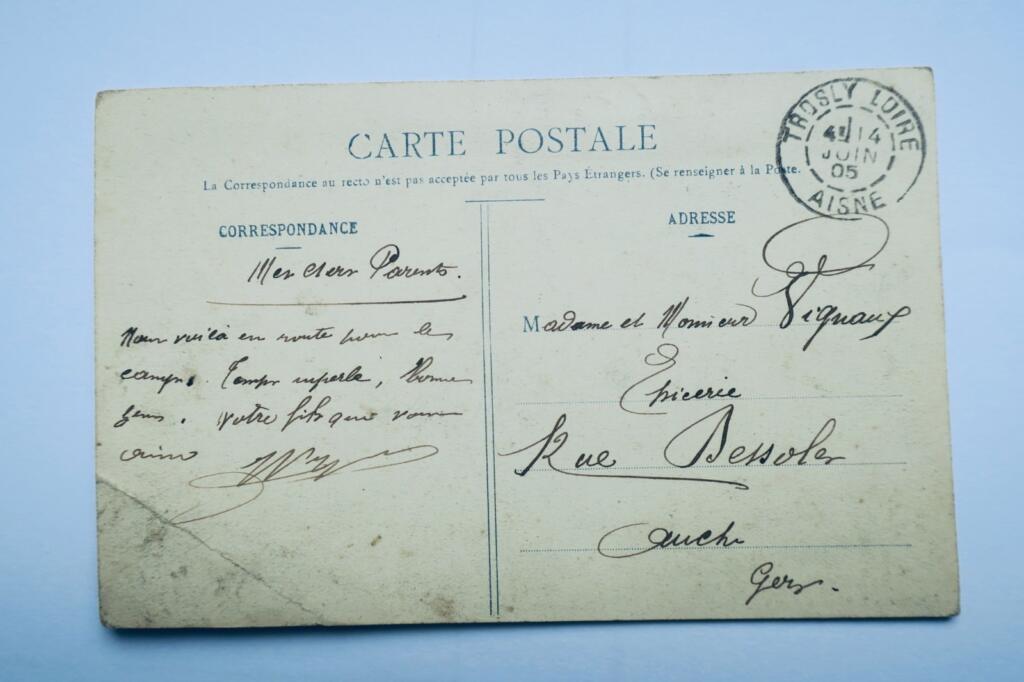 CARTE POSTALE
La Correspondance au recto n'est pas acceptée par tous les Pays Étrangers. (Se renseigner à la Poste.
TROSLY LOIRE
14
JUIN
05
AISNE
CORRESPONDANCE
Mes chers Parents.
Nous voilà en route pour le
camp. Temps superbe, Bonne
gens. Votre fils qui vous
aime
ADRESSE
Madame et Monsieur Vignaux
Epicerie
Rue Bessoles
Auch
Gers.